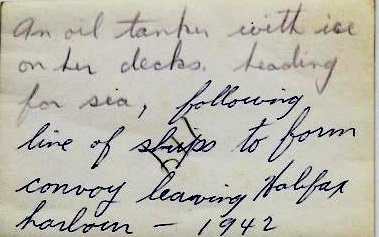 An oil tanker with ice
on her decks. heading
for sea, following
line of ships to form
convoy leaving Halifax
harbour - 1942